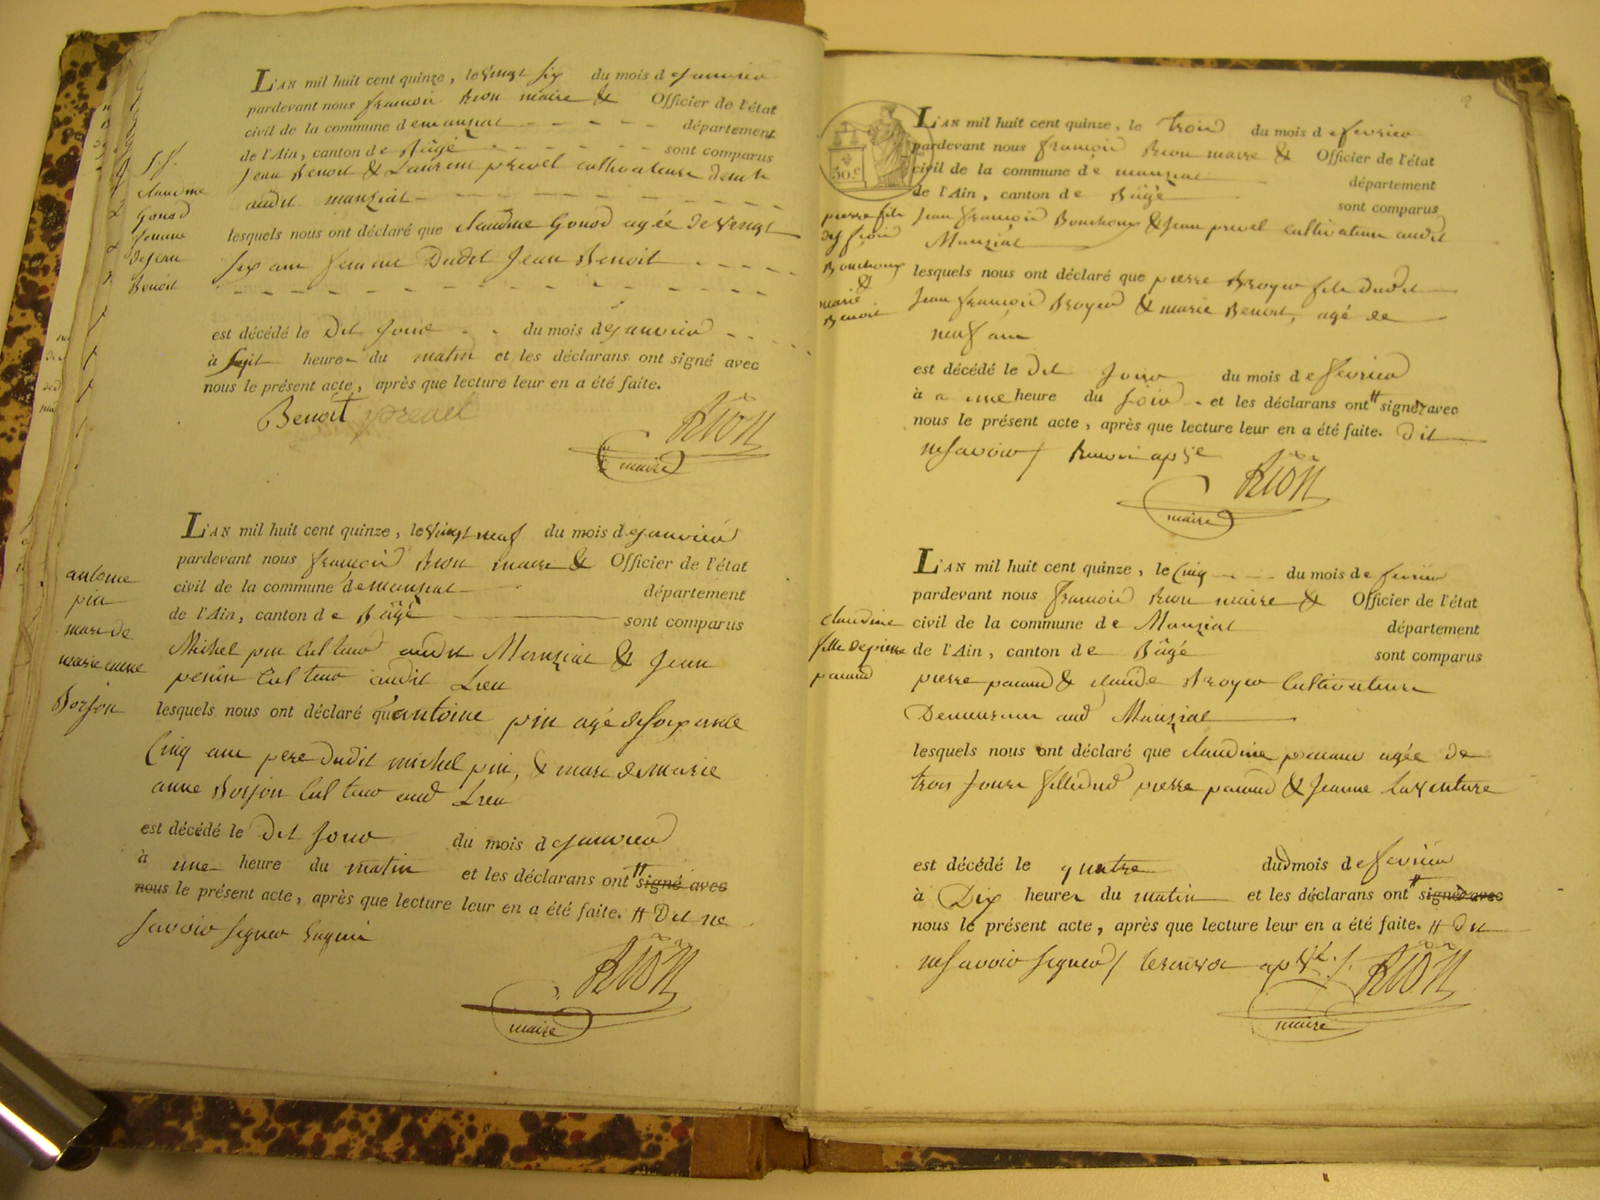 L'AN mil huit cent quinze, le vingt six du mois de janvier
pardevant nous françois Rion maire & Officier de l'état
civil de la commune de manziat département
de l'Ain, canton de Bâgé sont comparus
Jean Benoit & Laurent prevel cultivateurs
audit manziat
lesquels nous ont déclaré que claudine Gonod agée de vingt
six ans femme Dudit Jean Benoit
est décédé le Dit jour du mois de janvier
à heures du matin et les déclarans ont signé avec
nous le présent acte, après que lecture leur en a été faite.
Benoit prevel Rion
maire
claudine
Gonod
femme
de jean
Benoit
L'AN mil huit cent quinze, le vingt neuf du mois de janvier
pardevant nous françois Rion maire & Officier de l'état
civil de la commune de manziat département
de l'Ain, canton de Bâgé sont comparus
Michel pin cultiver audit Manziat & Jean
cultiver audit Lieu
lesquels nous ont déclaré qu'antoine pin agé de soixante
Cinq ans pere dudit michel pin, & mari de marie
anne Borjon cultiver aud Lieu
est décédé le Dit jour du mois de janvier
à une heure du matin et les déclarans ont # signé avec
nous le présent acte, après que lecture leur en a été faite. # Dit ne
savoir signer Enquis
Rion
maire
antoine
pin
mari de
marie anne
Borjon
2
30.c
L'AN mil huit cent quinze, le trois du mois de fevrier
pardevant nous françois Rion maire & Officier de l'état
civil de la commune de manziat département
de l'Ain, canton de Bâgé sont comparus
Jean françois Bouchoux & Jean prevel cultivateurs audit
Manziat
lesquels nous ont déclaré que pierre Broyer fils dudit
Jean françois Broyer & marie Benoit, agé de
neuf ans
est décédé le Dit jour du mois de fevrier
à une heure du soir et les déclarans ont # signer avec
nous le présent acte, après que lecture leur en a été faite. dit
ne savoir /
Rion
maire
pierre fils
de f.cois
Bouchoux
&
marie
Benoit
L'AN mil huit cent quinze, le cinq du mois de fevrier
pardevant nous françois Rion maire & Officier de l'état
civil de la commune de Manziat département
de l'Ain, canton de Bâgé sont comparus
pierre pacaud & claude Broyer cultivateurs
Demeurans aud Manziat
lesquels nous ont déclaré que claudine pacaud agée de
trois jours fille dud pierre pacaud & Jeanne Laventure
est décédé le quatre dud mois de fevrier
à Dix heures du matin et les déclarans ont # signer avec
nous le présent acte, après que lecture leur en a été faite. # Dit
ne savoir signer /
Rion
maire
claudine
fille de pierre
pacaud